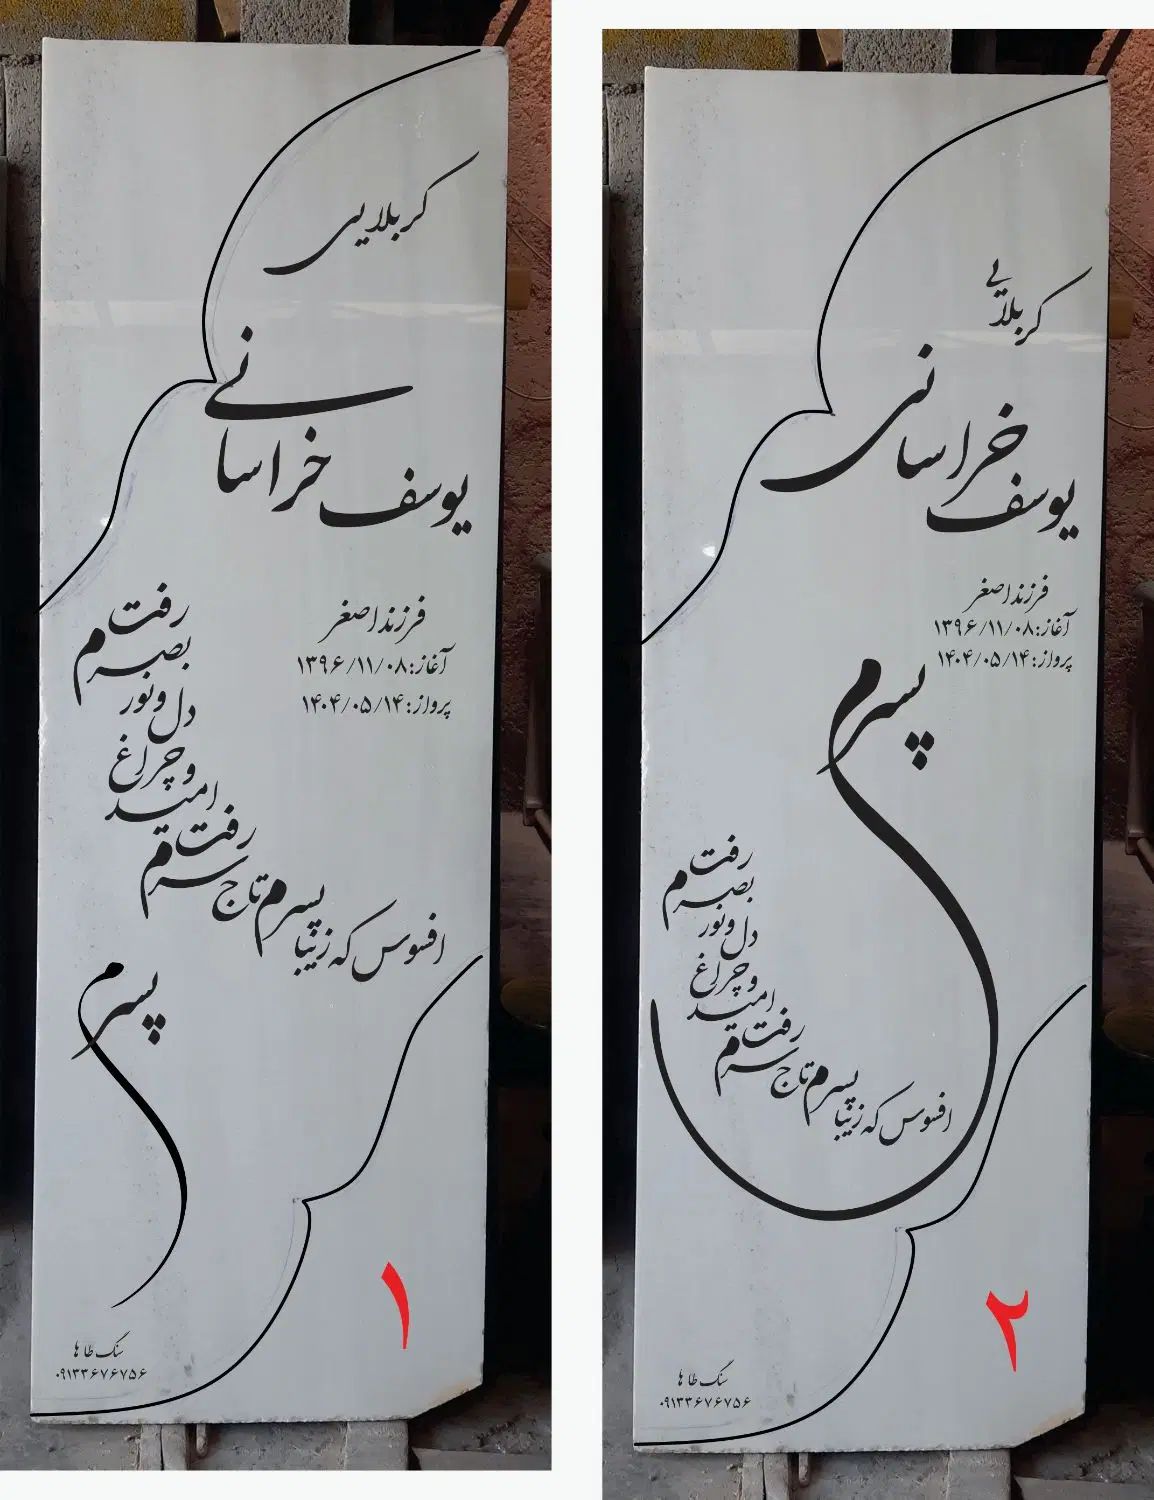 کربلایی
یوسف خراسانی
فرزند اصغر
آغاز: ۱۳۹۶/۱۱/۰۸
پرواز: ۱۴۰۴/۰۵/۱۴
افسوس که زیبا پسرم تاج سرم رفت
امید و چراغ دل و نور بصرم رفت
پسرم
سنگ طاها
۰۹۱۳۳۶۷۶۷۵۶
۱
کربلایی
یوسف خراسانی
فرزند اصغر
آغاز: ۱۳۹۶/۱۱/۰۸
پرواز: ۱۴۰۴/۰۵/۱۴
پسرم
افسوس که زیبا پسرم تاج سرم رفت
امید و چراغ دل و نور بصرم رفت
سنگ طاها
۰۹۱۳۳۶۷۶۷۵۶
۲